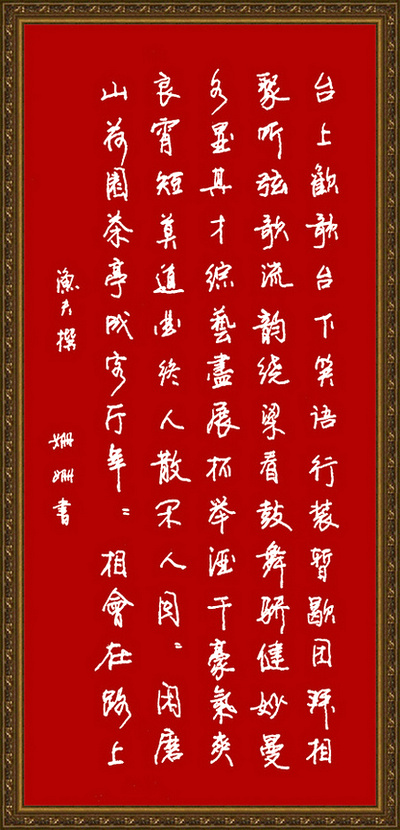 台上歡歌台下笑语行装暂歇团相
聚听弦歌流韵绕梁看鼓舞骄健妙曼
各显其才综藝盡展杯举酒干豪氣爽
良宵短莫道曲终人散人问：磨
山荷园茶亭成客行年：相會在路上
渔夫撰 姗姗書